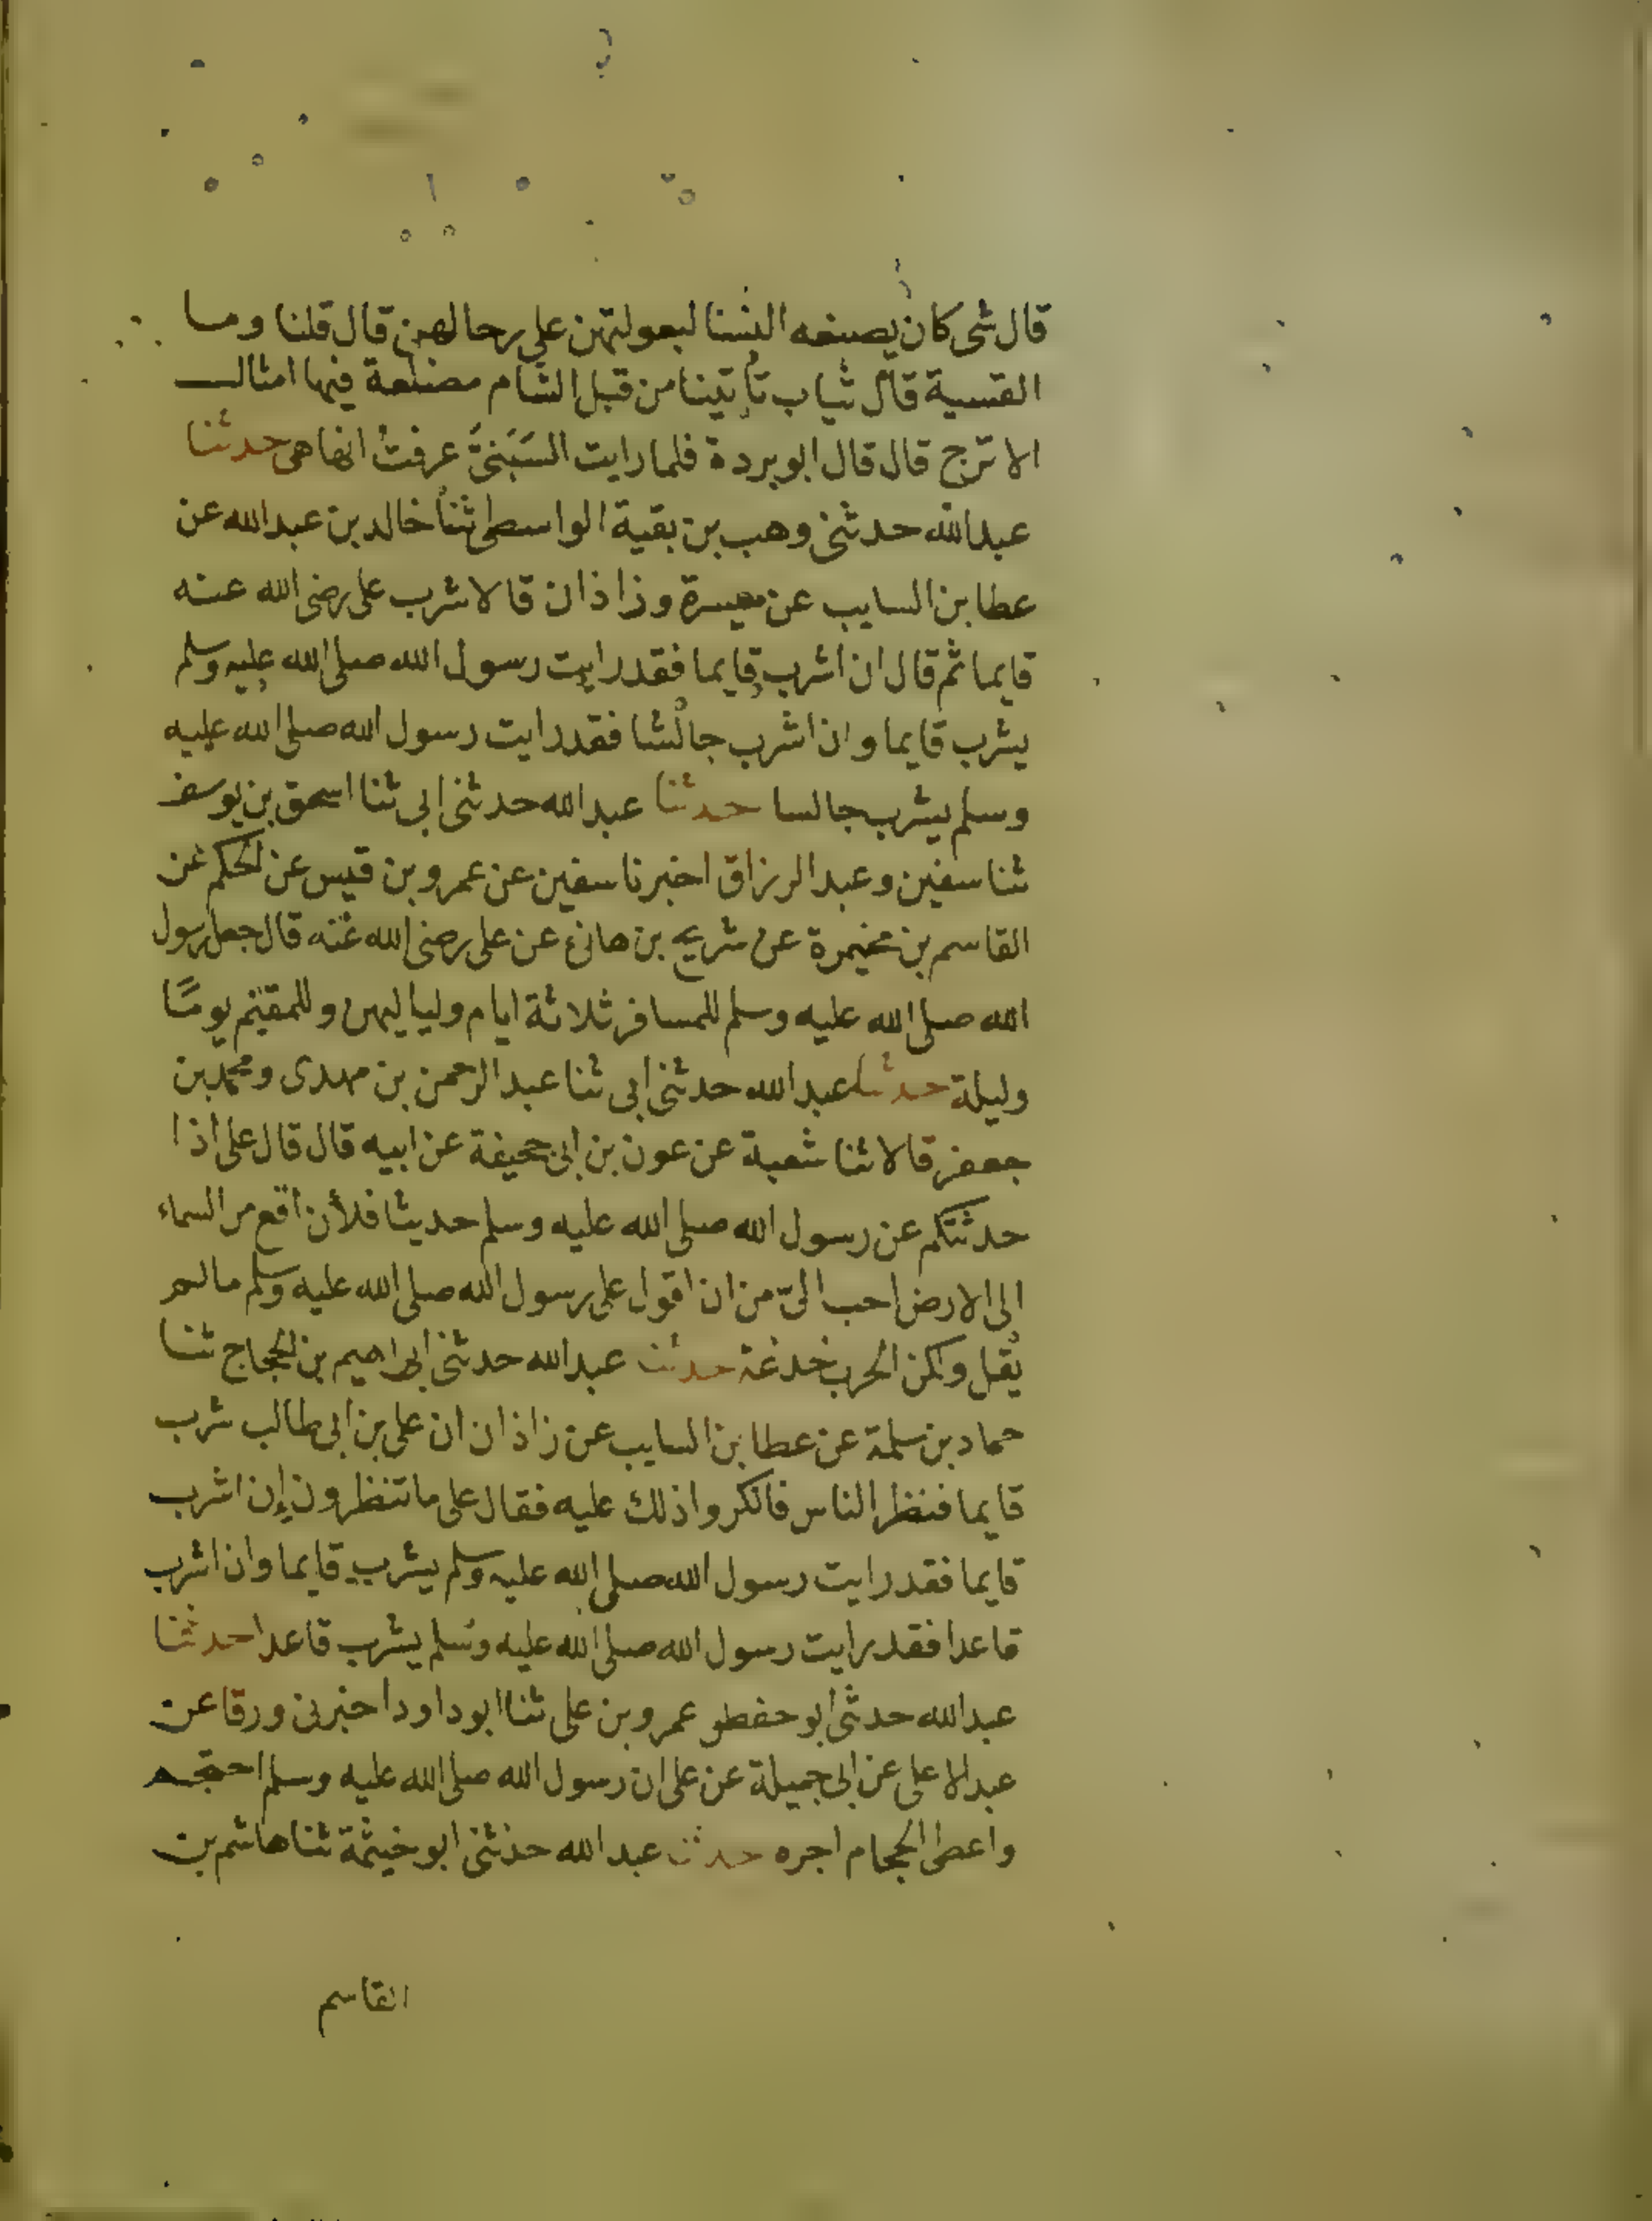 قال شى كان يصنعه النسا لبعولتهن على رحالهن قال قلنا وما
القسية قال ثياب تأتينا من قبل الشام مضلعة فيها امثال
الاترج قال قال ابو بردة فلما رايت السَبَنىَّ عرفتُ انها هى حدثنا
عبدالله حدثنى وهب بن بقية الواسطى ثنا خالد بن عبدالله عن
عطا بن السايب عن ميسرة وزاذان قالا شرب على رضى الله عنه
قايما ثم قال ان اشرب قايما فقد رايت رسول الله صلى الله عليه وسلم
يشرب قايما وان اشرب جالسا فقد رايت رسول الله صلى الله عليه
وسلم يشرب جالسا حدثنا عبدالله حدثنى ابى ثنا اسحق بن يوسف
ثنا سفين وعبد الرزاق اخبرنا سفين عن عمرو بن قيس عن الحكم عن
القاسم بن مخيمرة عن شريح بن هانئ عن على رضى الله عنه قال جعل رسول
الله صلى الله عليه وسلم للمسافر ثلاثة ايام ولياليهن وللمقيم يومًا
وليلة حدثنا عبدالله حدثنى ابى ثنا عبد الرحمن بن مهدى ومحمد بن
جعفر قالا ثنا شعبة عن عون بن ابى جحيفة عن ابيه قال قال على اذا
حدثتكم عن رسول الله صلى الله عليه وسلم حديثا فلأن اقع من السماء
الى الارض احب الىّ من ان اقول على رسول الله صلى الله عليه وسلم مالم
يُقل ولكن الحرب خدعة حدثنا عبدالله حدثنى ابراهيم بن الحجاج ثنا
حماد بن سلمة عن عطا بن السايب عن زاذان ان على بن ابى طالب شرب
قايما فنظر الناس فانكروا ذلك عليه فقال على ما تنظرون إن اشرب
قايما فقد رايت رسول الله صلى الله عليه وسلم يشرب قايما وان اشرب
قاعدا فقد رايت رسول الله صلى الله عليه وسلم يشرب قاعدا حدثنا
عبدالله حدثنى ابو حفص عمرو بن على ثنا ابو داود اخبرنى ورقا عن
عبد الاعلى عن ابى جميلة عن على ان رسول الله صلى الله عليه وسلم احتجم
واعطى الحجام اجره حدثنا عبدالله حدثنى ابو خيثمة ثنا هاشم بن
القاسم